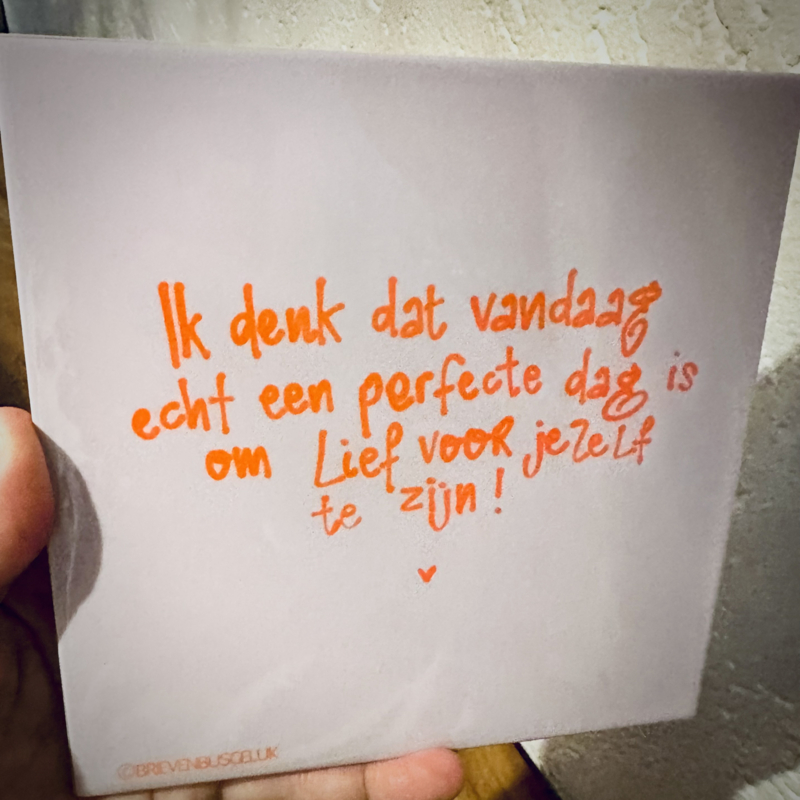 Ik denk dat vandaag
echt een perfecte dag is
om Lief voor jezelf
te zijn!
©BRIEVENBUSGELUK